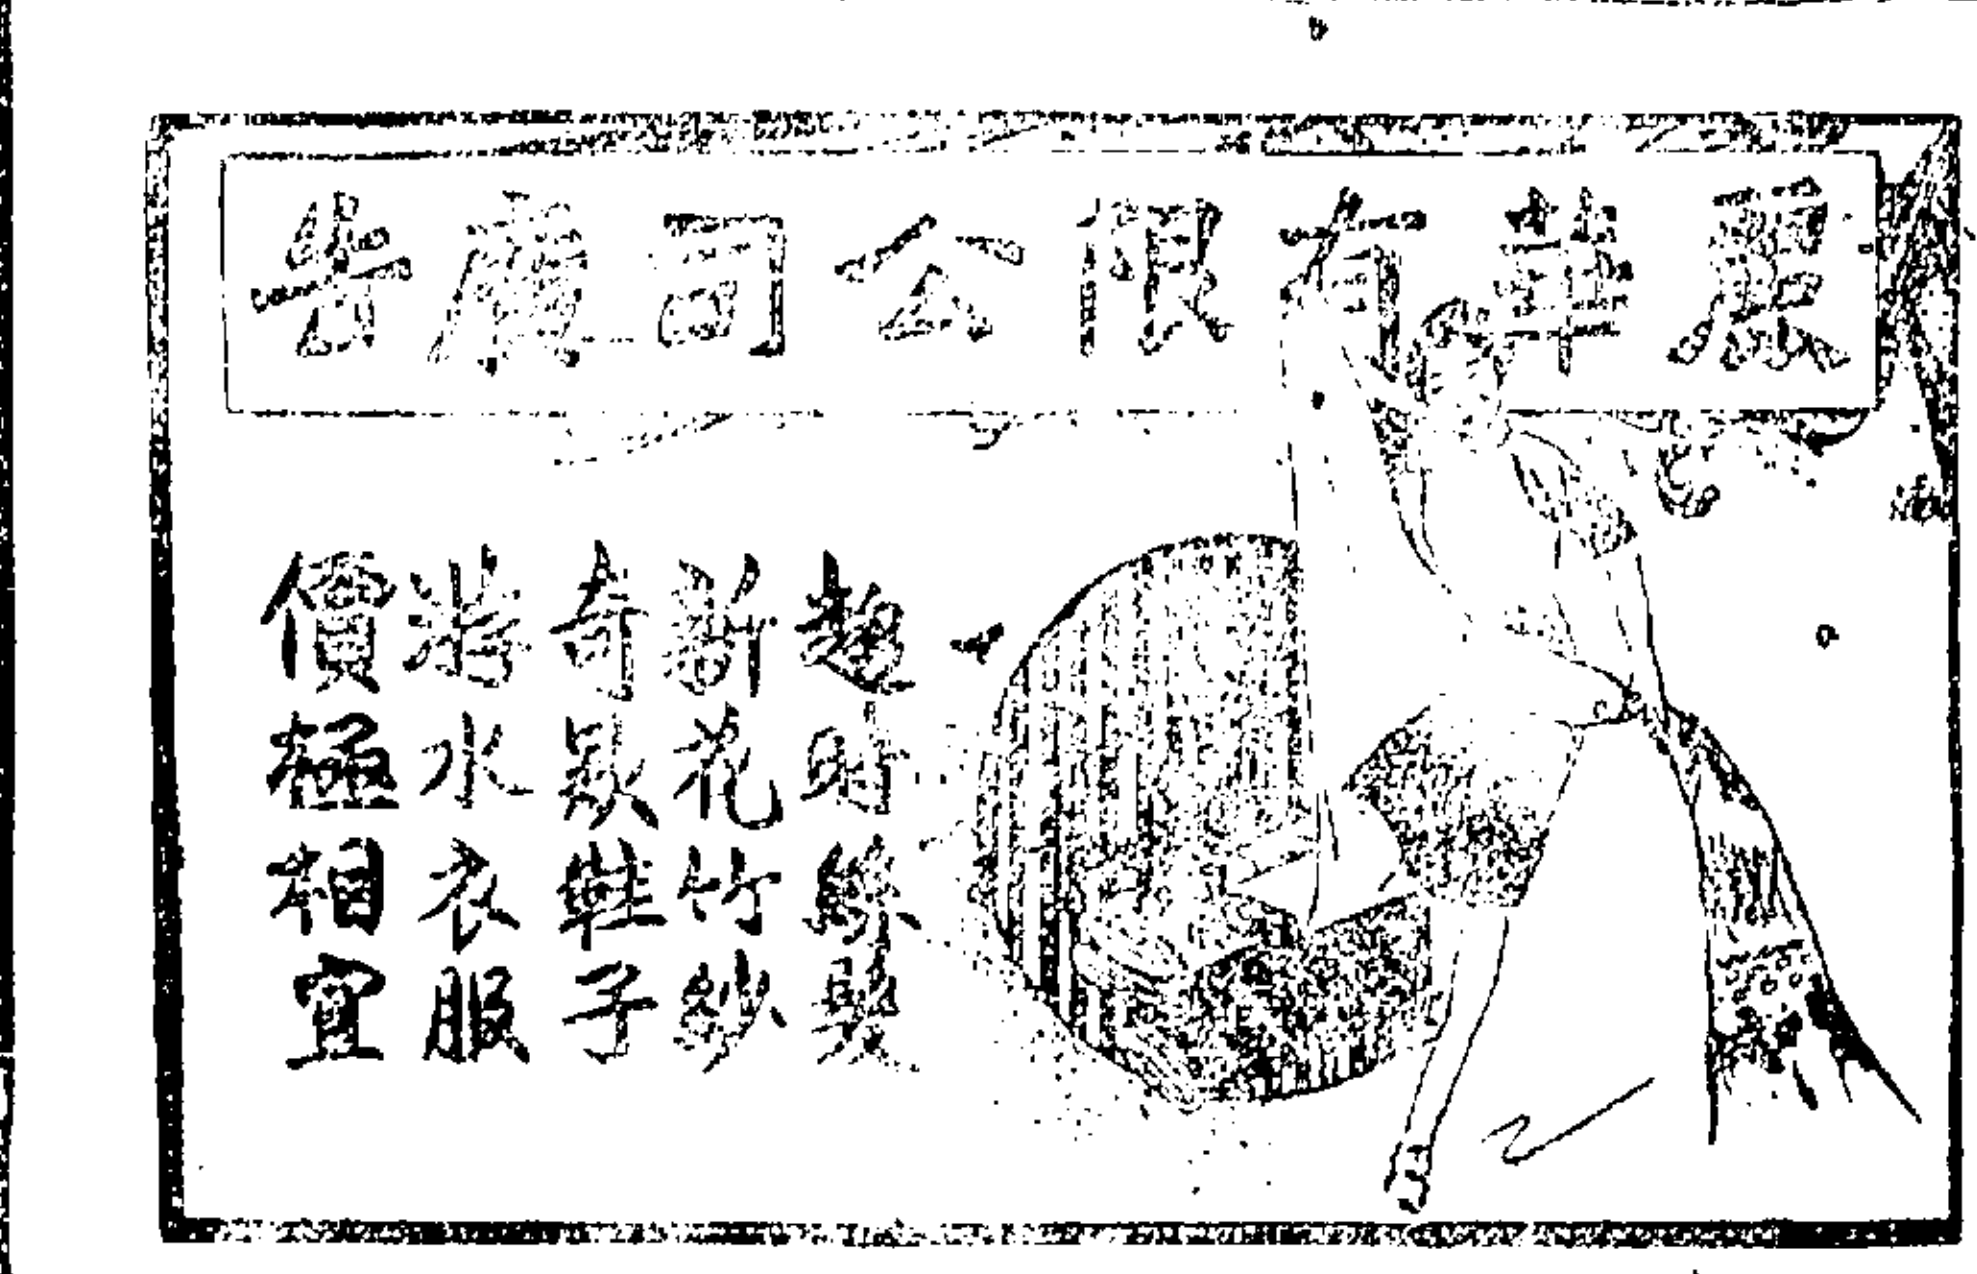 麗華有限公司廣告
趨時絲髮
新花竹紗
奇款鞋子
游水衣服
價極相宜